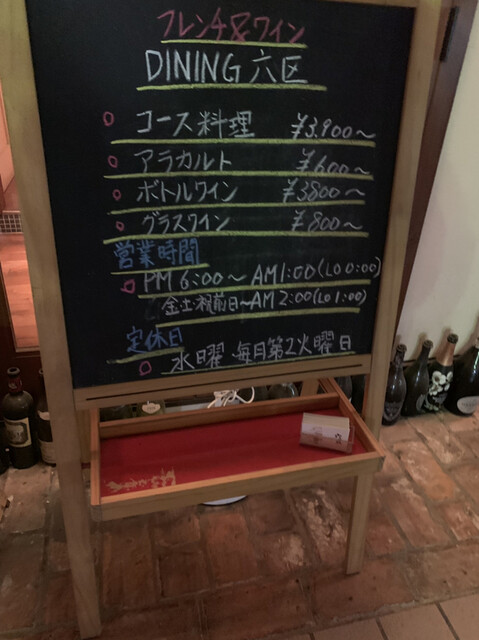 フレンチ&ワイン
DINING 六区
○ コース料理 ¥3,900〜
○ アラカルト ¥600〜
○ ボトルワイン ¥3800〜
○ グラスワイン ¥800〜
営業時間
○ PM 6:00〜AM1:00(LO 0:00)
金土祝前日〜AM 2:00(LO 1:00)
定休日
○ 水曜、毎月第2火曜日